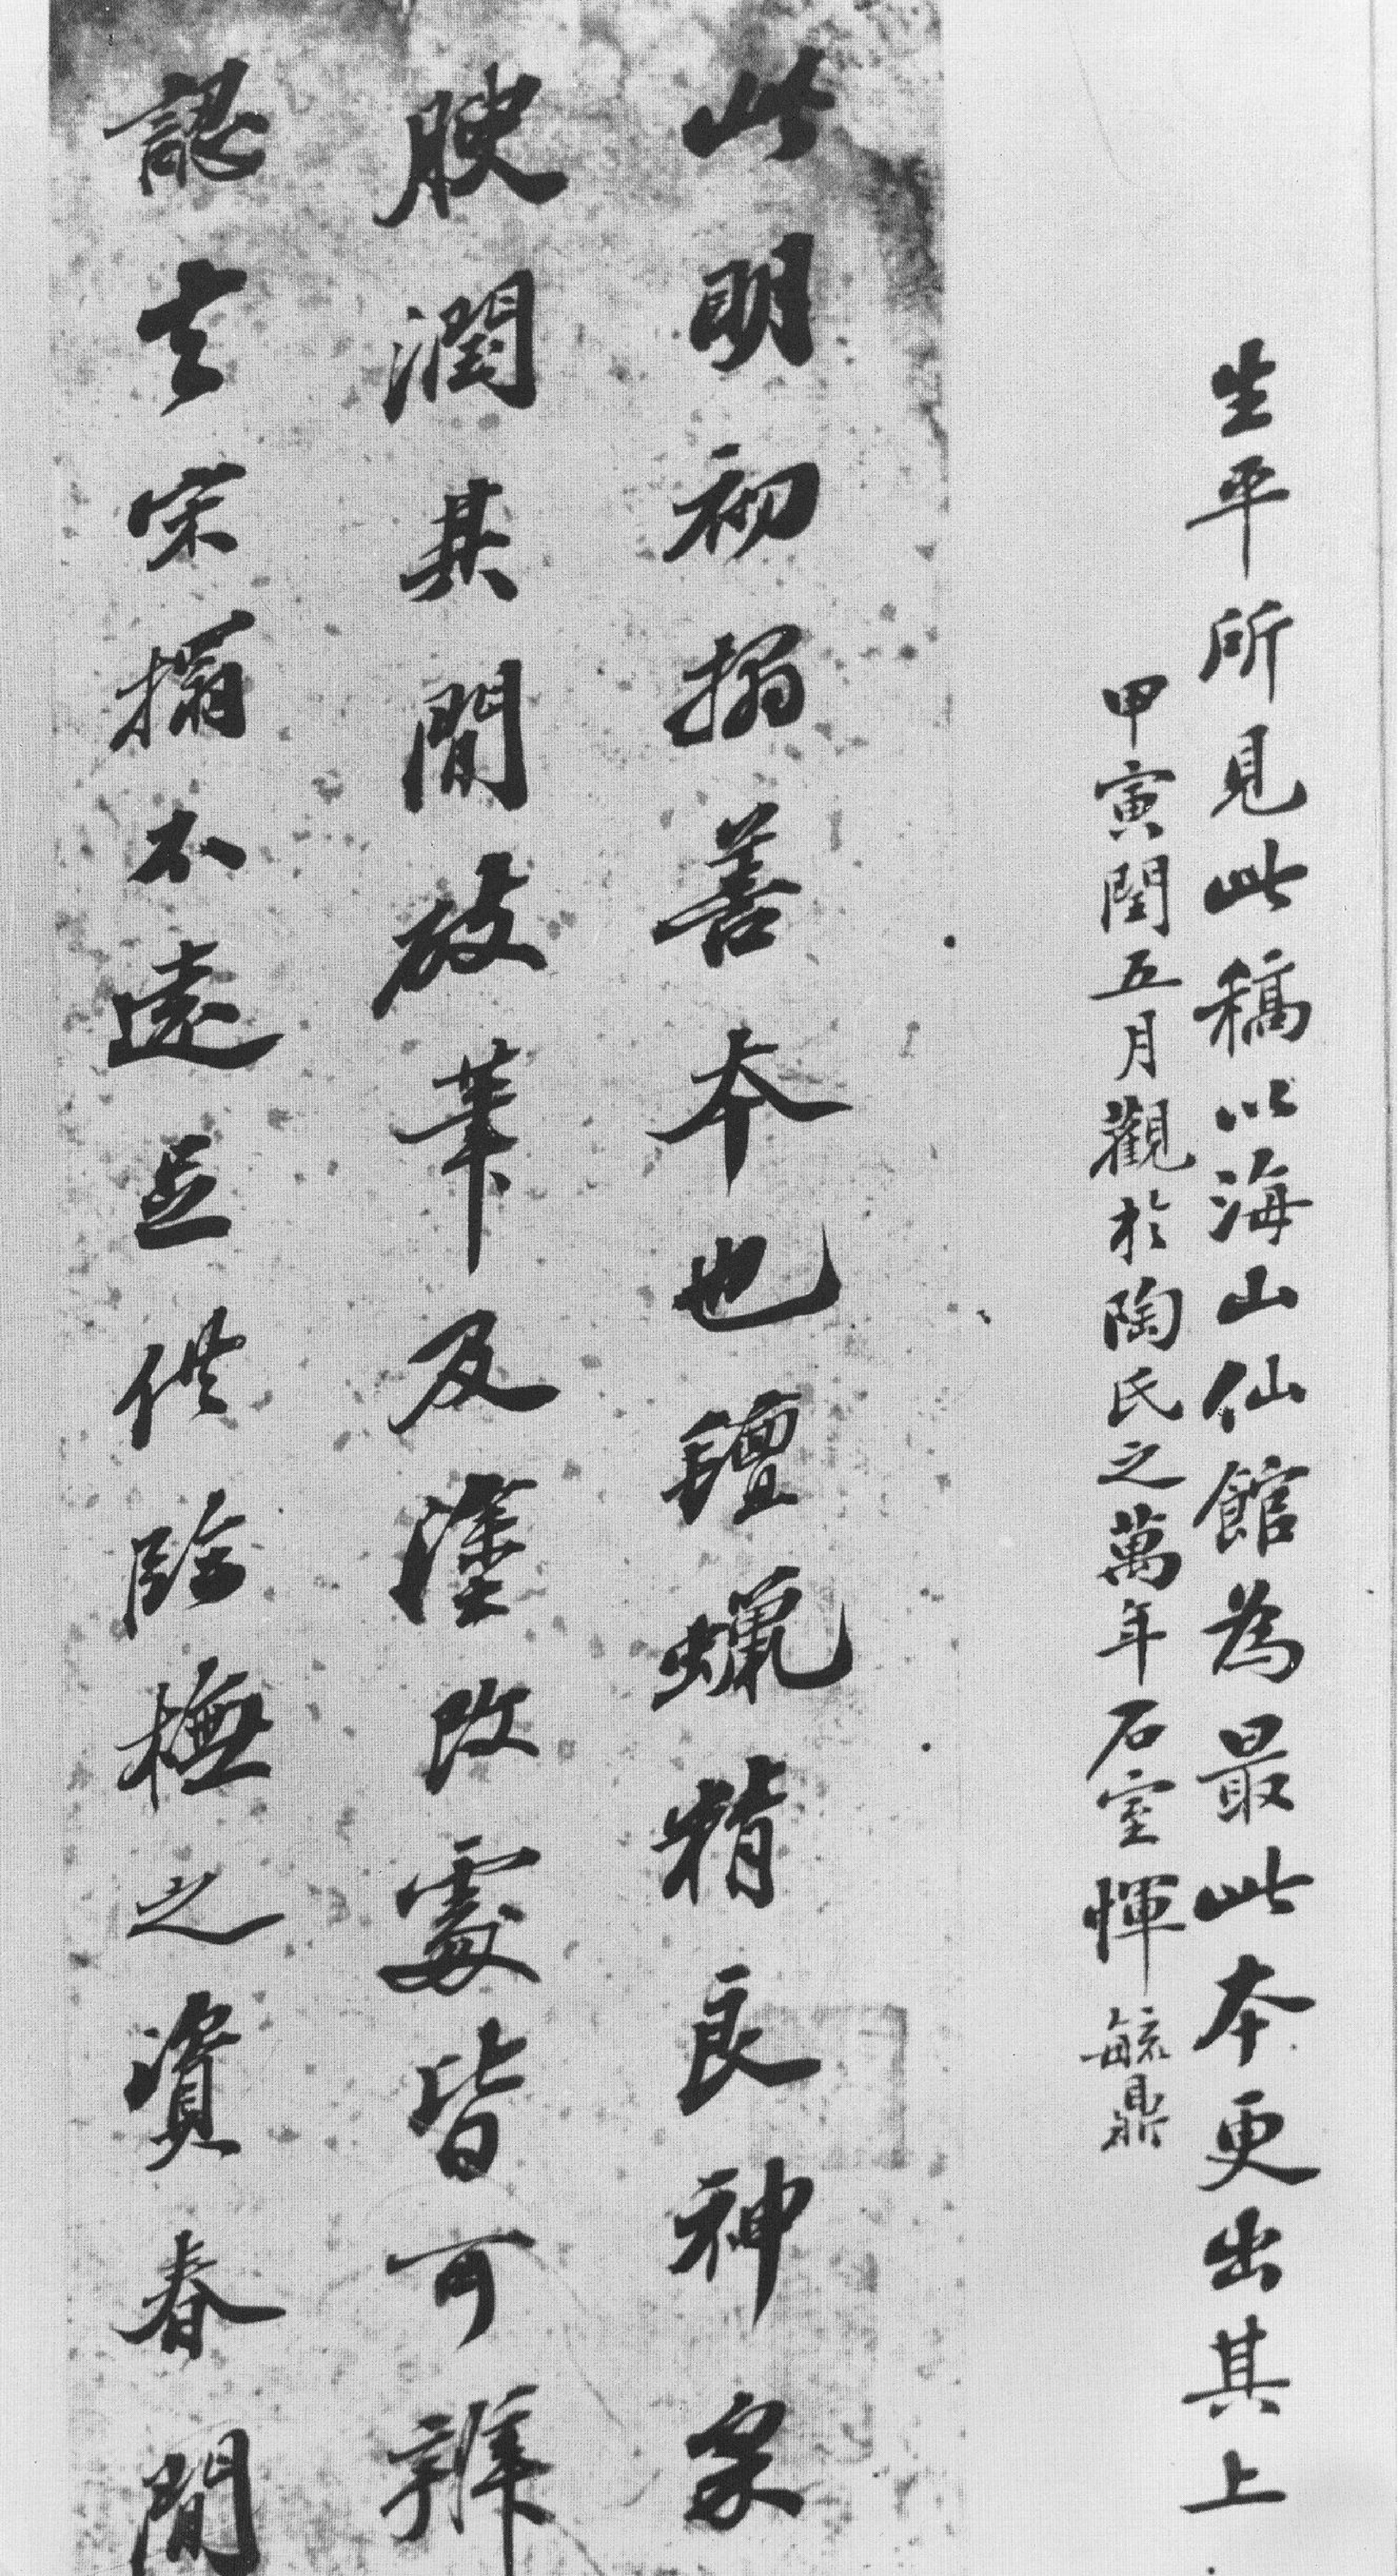 生平所見此稿以海山仙館為最此本更出其上
甲寅閏五月觀於陶氏之萬年石室惲毓鼎
此明初搨善本也氊蠟精良神采
腴潤其間破筆及塗改處皆可辨
認去宋搨不遠足供臨橅之資春間